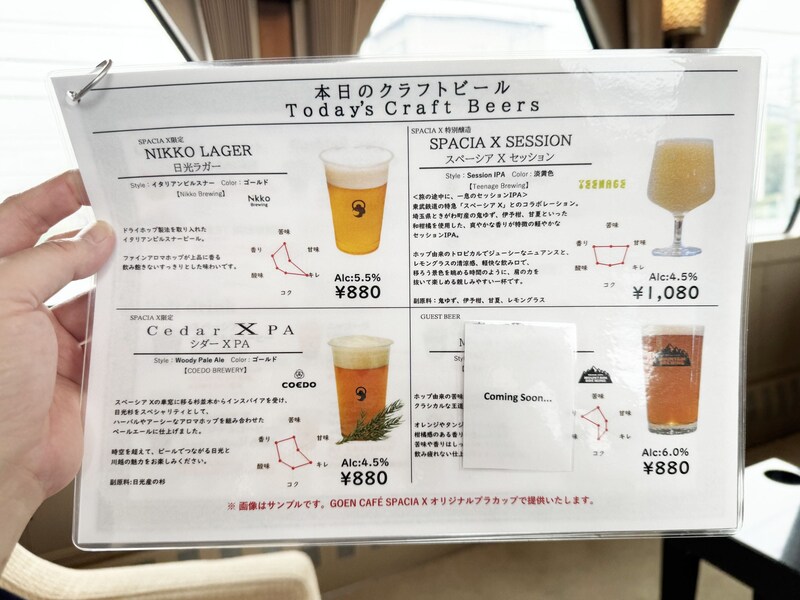 本日のクラフトビール
Today's Craft Beers
SPACIA X限定
NIKKO LAGER
日光ラガー
Style：イタリアンピルスナー　Color：ゴールド
【Nikko Brewing】
Nikko
Brewing
ドライホップ製法を取り入れた
イタリアンピルスナービール。
ファインアロマホップが上品に香る
飲み飽きないすっきりとした味わいです。
苦味
香り
甘味
酸味
キレ
コク
Alc:5.5%
¥880
SPACIA X 特別醸造
SPACIA X SESSION
スペーシア X セッション
Style：Session IPA　Color：淡黄色
【Teenage Brewing】
TEENAGE
＜旅の途中に、一息のセッションIPA＞
東武鉄道の特急「スペーシア X」とのコラボレーション。
埼玉県ときがわ町産の鬼ゆず、伊予柑、甘夏といった
和柑橘を使用した、爽やかな香りが特徴の軽やかな
セッションIPA。
ホップ由来のトロピカルでジューシーなニュアンスと、
レモングラスの清涼感、軽快な飲み口で、
移ろう景色を眺める時間のように、肩の力を
抜いて楽しめる親しみやすい一杯です。
副原料：鬼ゆず、伊予柑、甘夏、レモングラス
苦味
香り
甘味
酸味
キレ
コク
Alc:4.5%
¥1,080
SPACIA X限定
Cedar X PA
シダー X PA
Style：Woody Pale Ale　Color：ゴールド
【COEDO BREWERY】
COEDO
スペーシア Xの車窓に移る杉並木からインスパイアを受け、
日光杉をスペシャリティとして、
ハーバルやアーシーなアロマホップを組み合わせた
ペールエールに仕上げました。
時空を超えて、ビールでつながる日光と
川越の魅力をお楽しみください。
副原料:日光産の杉
苦味
香り
甘味
酸味
キレ
コク
Alc:4.5%
¥880
GUEST BEER
M
Style
Coming Soon...
ホップ由来の苦味
クラシカルな王道
オレンジやタンジ
柑橘感のある香り
苦味や香りはしっ
飲み疲れない仕上
苦味
甘味
キレ
コク
Alc:6.0%
¥880
※ 画像はサンプルです。GOEN CAFÉ SPACIA X オリジナルプラカップで提供いたします。